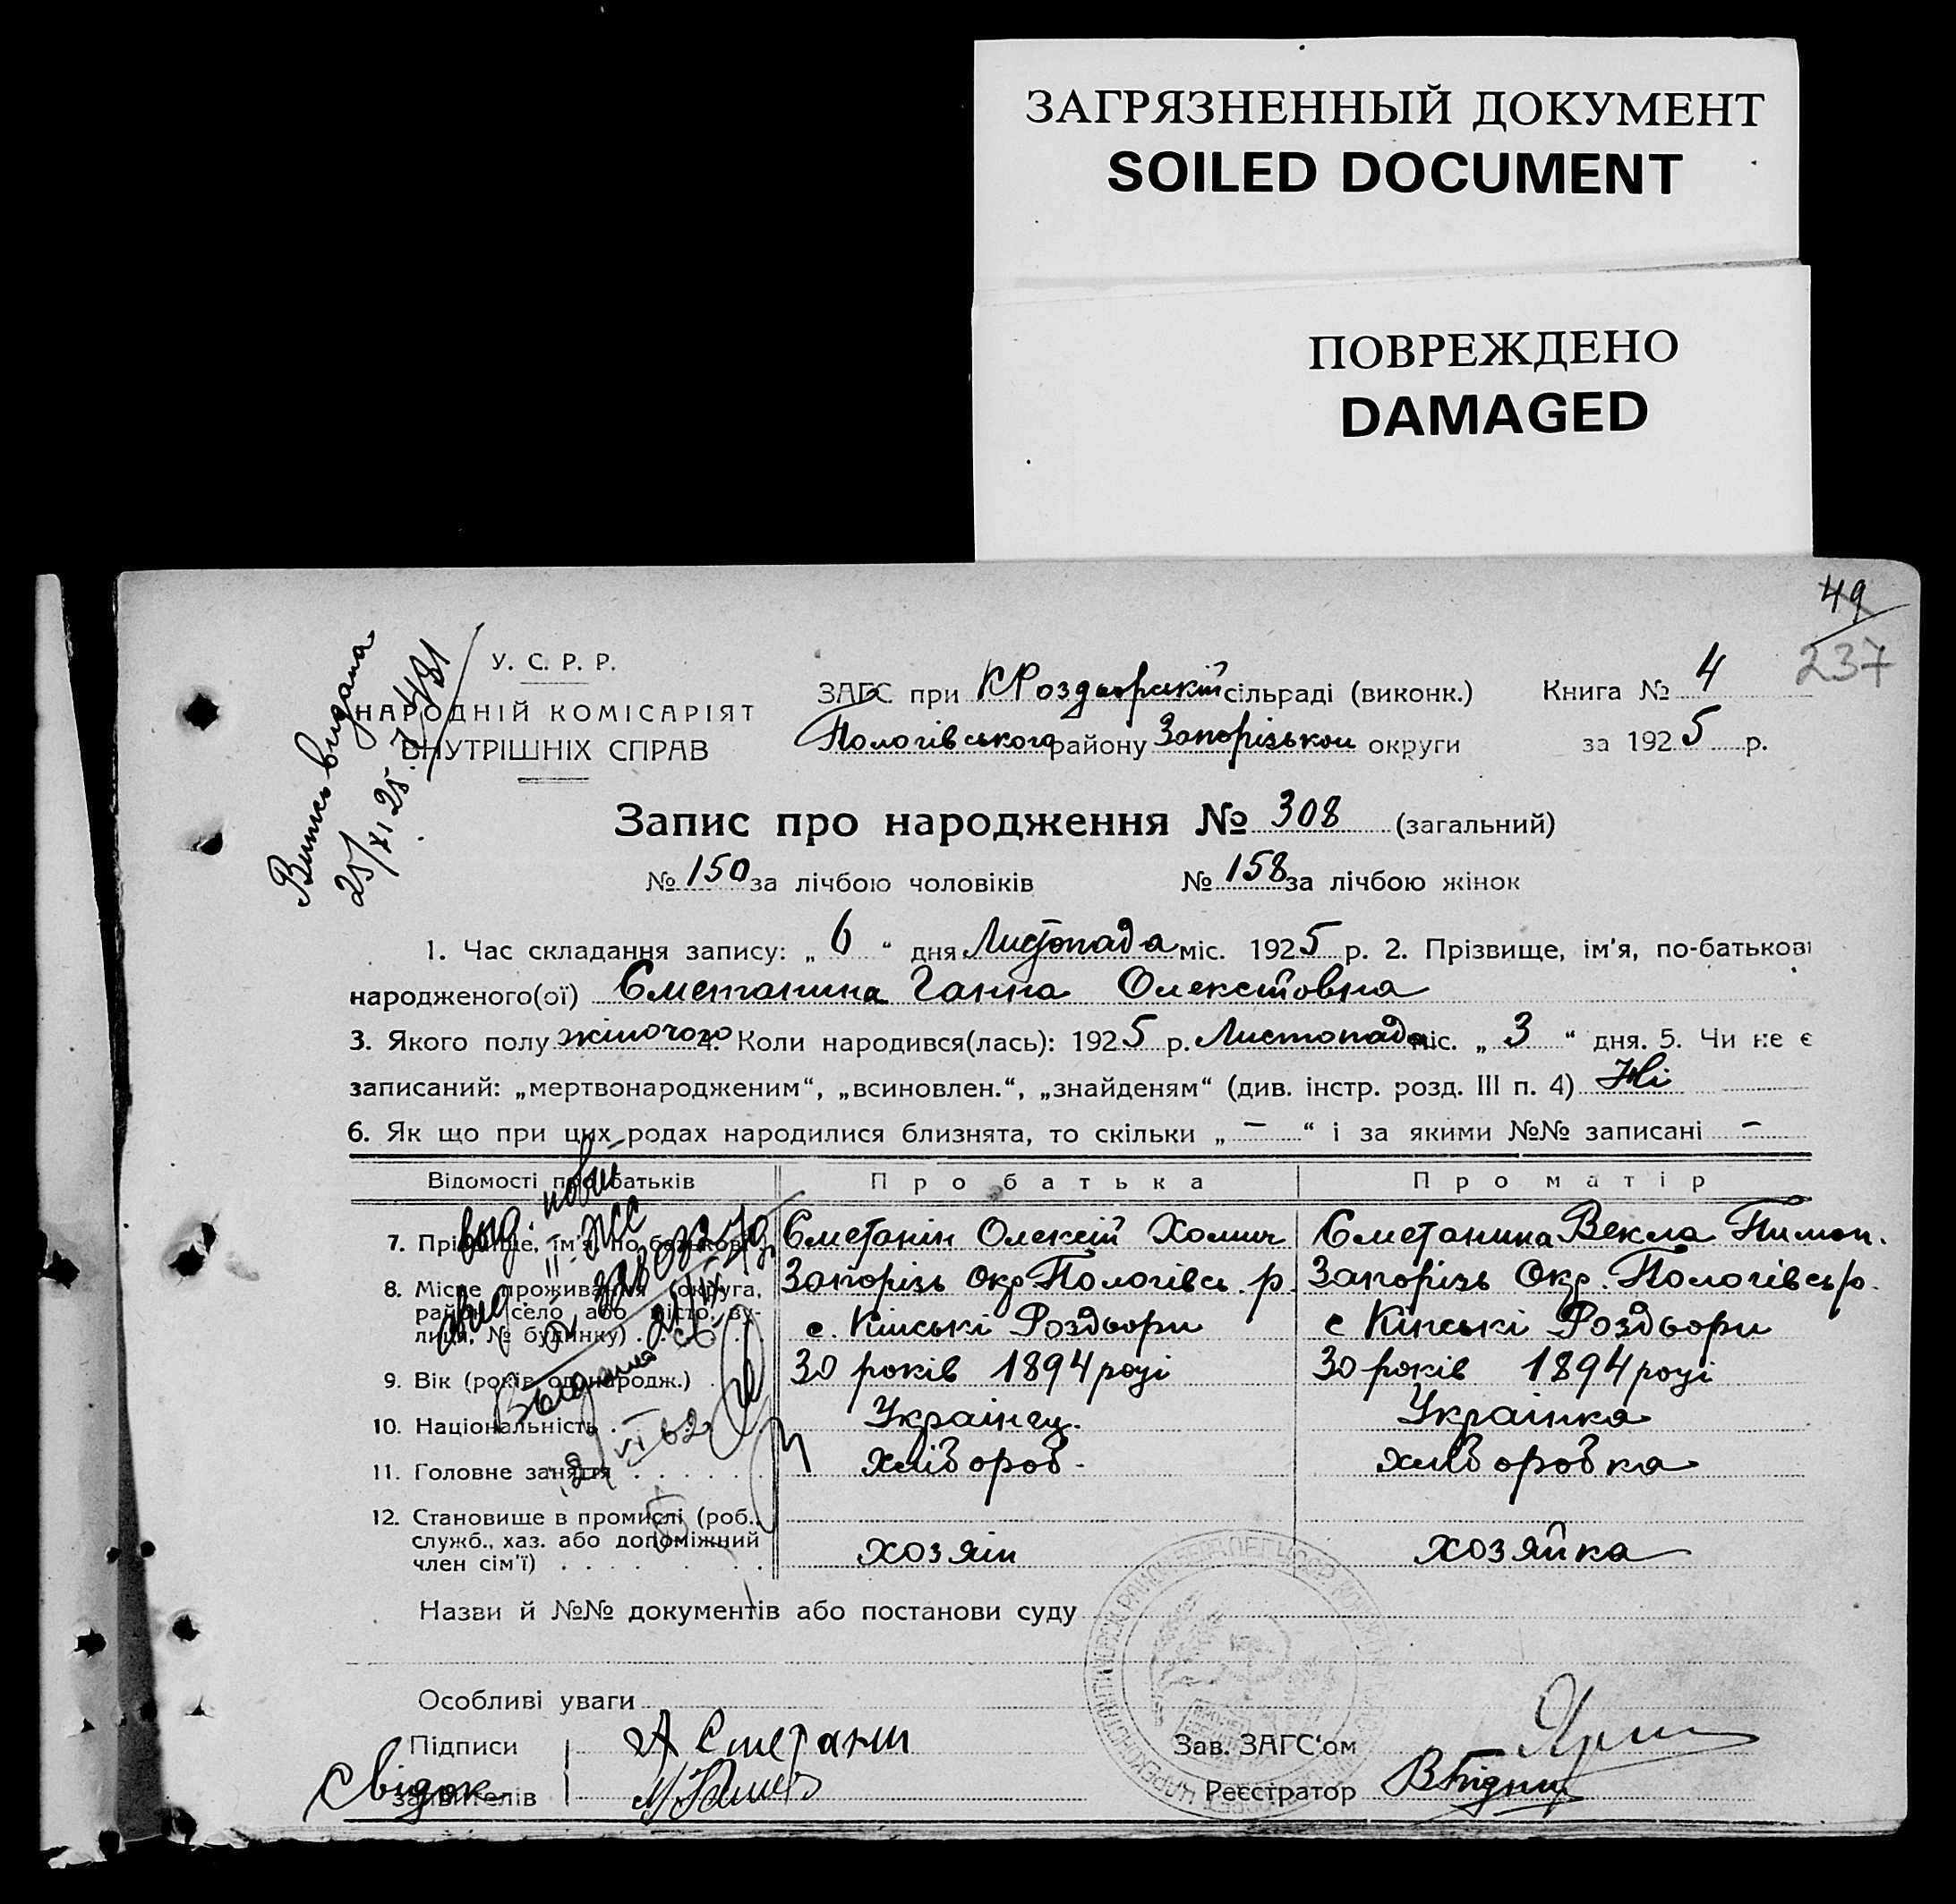 ЗАГРЯЗНЕННЫЙ ДОКУМЕНТ
SOILED DOCUMENT
ПОВРЕЖДЕНО
DAMAGED
49
237
Випись видана
25/XI 25
У. С. Р. Р.
НАРОДНІЙ КОМІСАРІЯТ
ВНУТРІШНІХ СПРАВ
ЗАГС при КРоздворській сільраді (виконк.) Книга № 4
Пологівського району Запорізької округи за 1925 р.
Запис про народження № 308 (загальний)
№ 150 за лічбою чоловіків № 158 за лічбою жінок
1. Час складання запису: „ 6 “ дня Листопада міс. 1925 р. 2. Прізвище, ім'я, по-батькові
народженого(ої) Сметанина Ганна Олексіївна
3. Якого полу жіночого 4. Коли народився(лась): 1925 р. Листопада міс. „ 3 “ дня. 5. Чи не є
записаний: „мертвонародженим“, „всиновлен.“, „знайденям“ (див. інстр. розд. III п. 4) Ні
6. Як що при цих родах народилися близнята, то скільки „ – “ і за якими №№ записані –
Відомості про батьків Про батька Про матір
7. Прізвище, ім'я, по-батькові Сметанін Олексій Хомич Сметанина Векла Пимон.
8. Місце проживання (округа, район, село або місто, вулиця, № будинку) Запорізь Окр Пологівсь. р. Запорізь Окр. Пологівсь р.
с. Кінські Роздори с Кінські Роздори
9. Вік (років од народж.) 30 років 1894 році 30 років 1894 році
10. Національність Українец. Украінка
11. Головне заняття хлібороб. хліборобка
12. Становище в промислі (роб., служб., хаз. або допоміжний член сім'ї) хозяін хозяйка
Видана
Назви й №№ документів або постанови суду
Особливі уваги
Підписи А Сметанин Зав. ЗАГС'ом
Свідок
заявителів Реєстратор